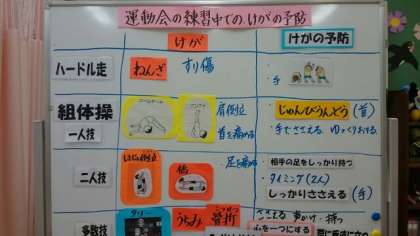 運動会の練習中での けがの予防
けが
けがの予防
ハードル走
ねんざ
すり傷
・手
組体操
肩倒立
首を痛める
じゅんびうんどう (首)
・手でささえる ゆっくりおりる
一人技
二人技
足を痛める
・相手の足をしっかり持つ
・タイミング(2人)
しっかりささえる (手)
多数技
タワー
うちみ
骨折
ささえる 声かけ・持つ
心を一つにする